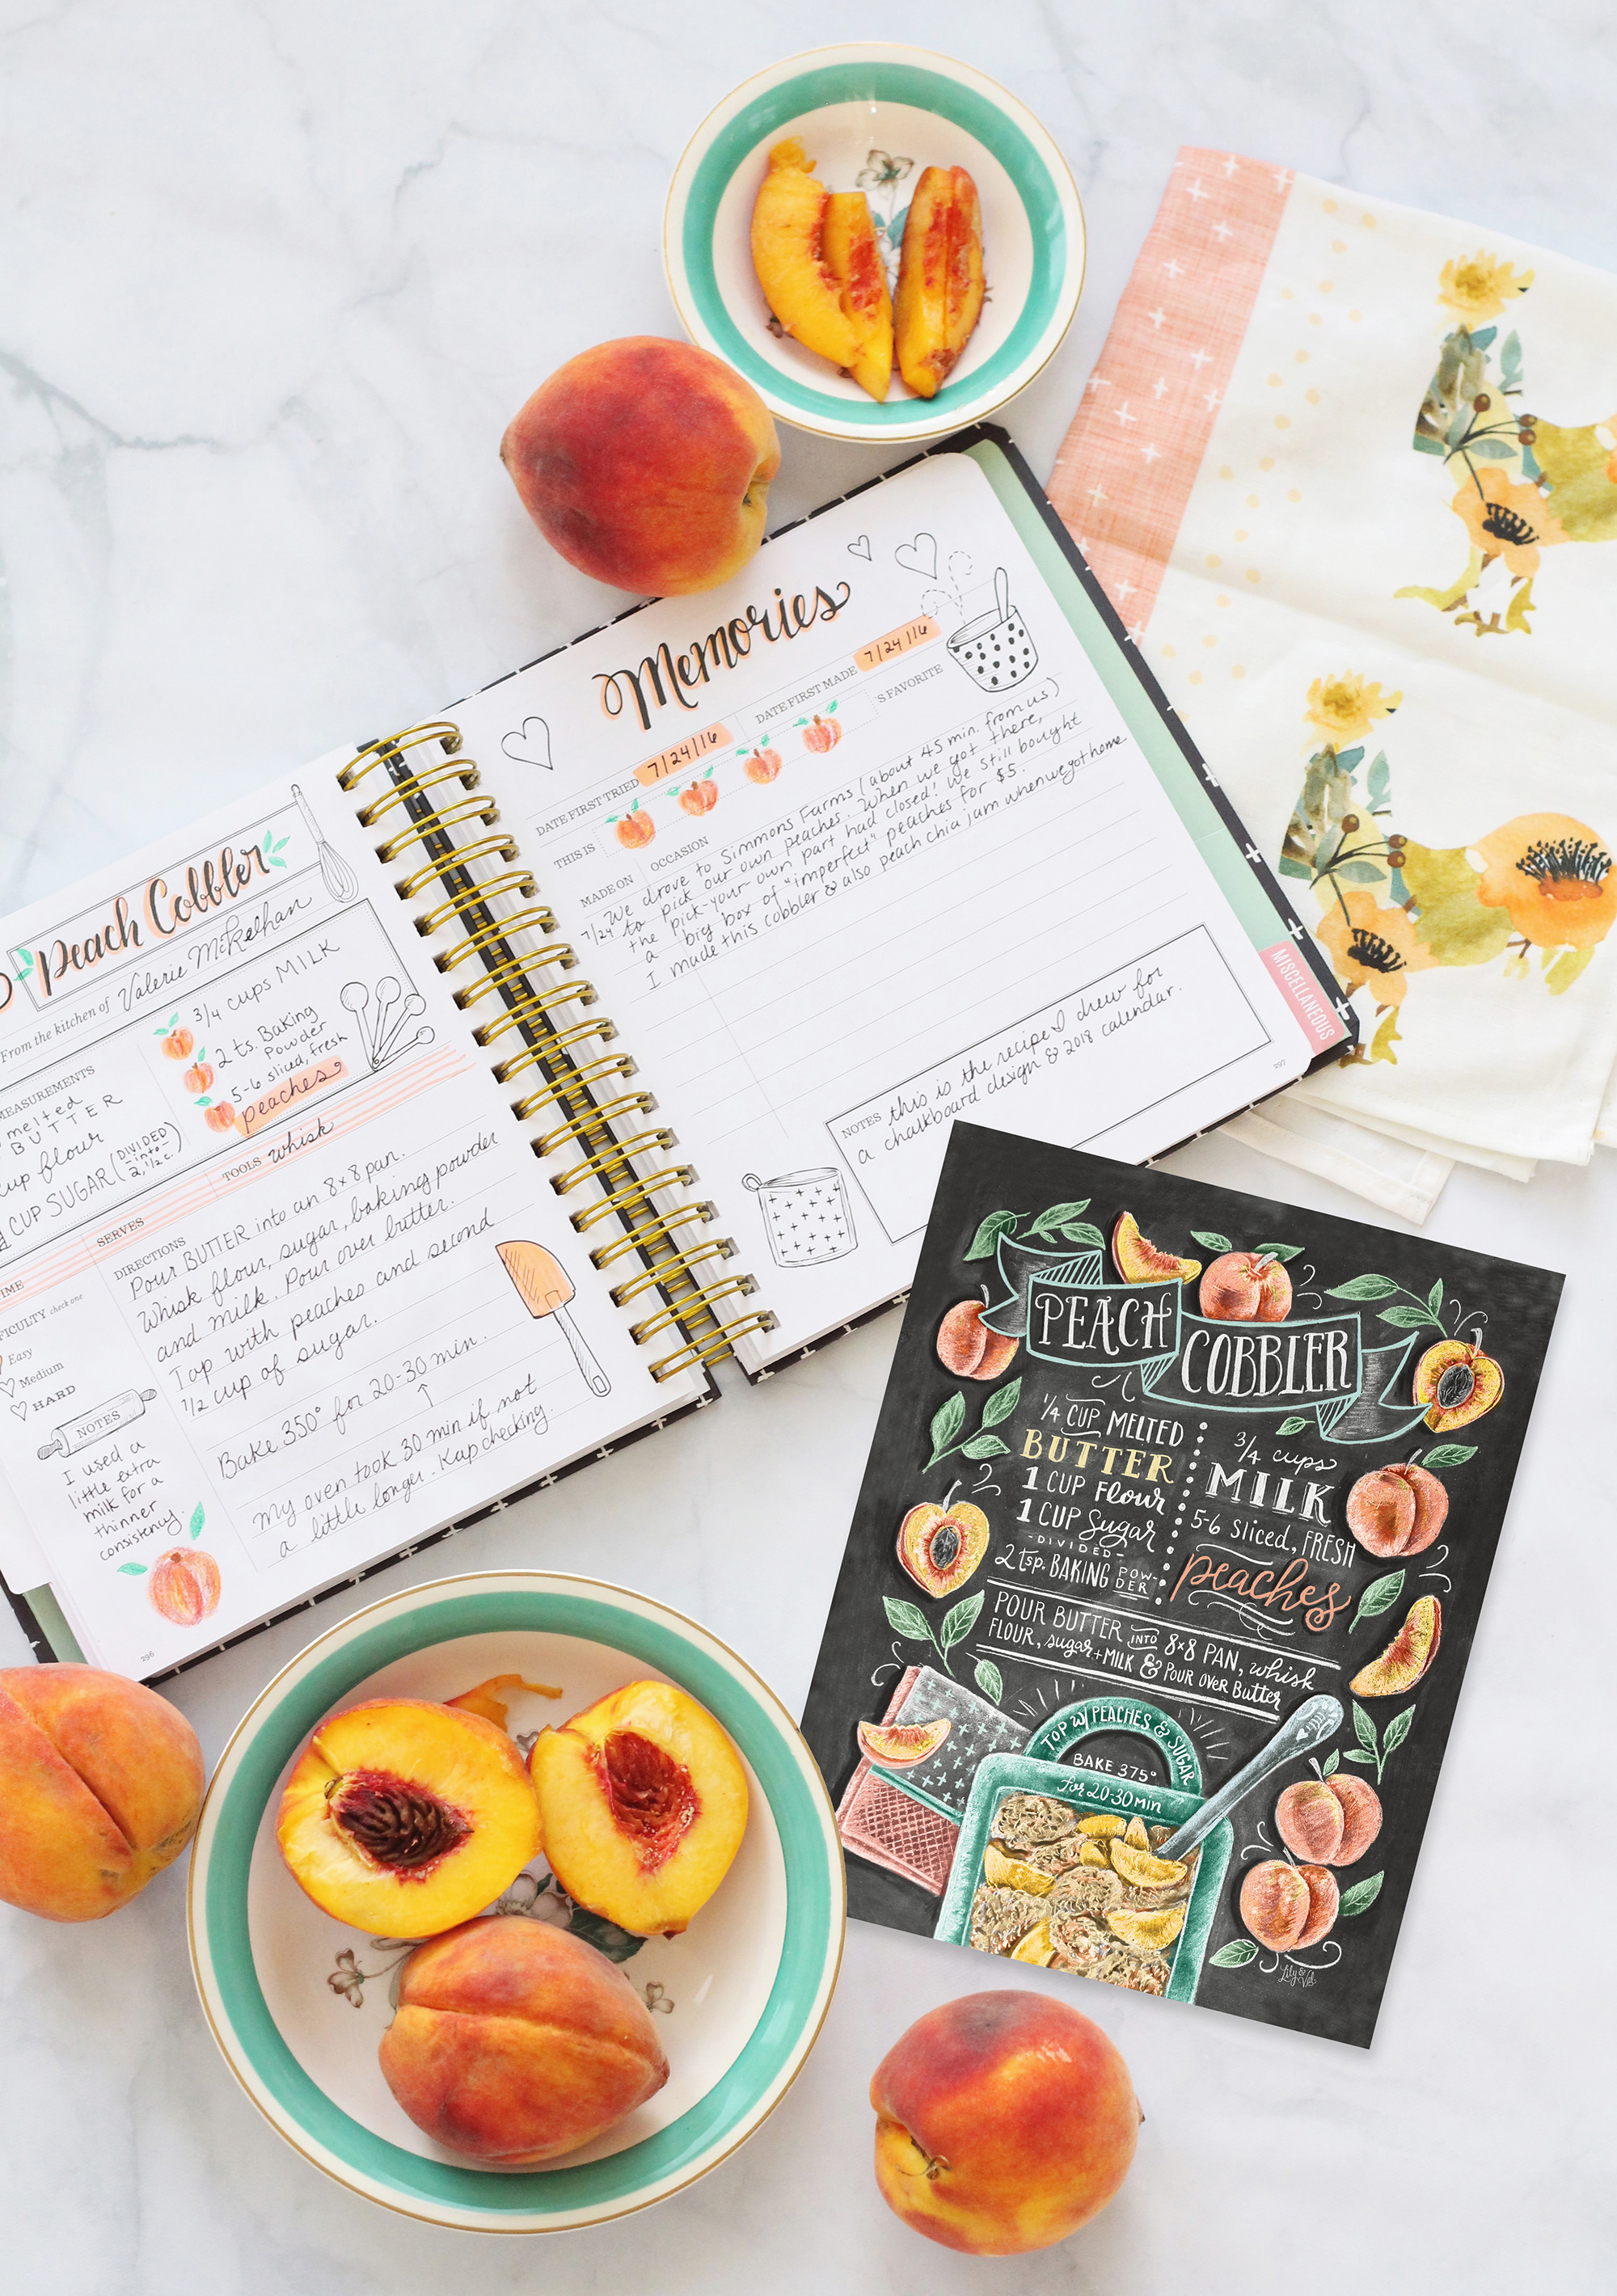 Peach Cobbler
From the kitchen of Valerie McKeehan
MEASUREMENTS
melted
BUTTER
cup flour
CUP SUGAR (DIVIDED
-into-
2, 1/2 c.)
3/4 cups MILK
2 ts. Baking
Powder
5-6 sliced, fresh
peaches
SERVES
TOOLS whisk
DIRECTIONS
Pour BUTTER into an 8x8 pan.
Whisk flour, sugar, baking powder
and milk. Pour over butter.
Top with peaches and second
1/2 cup of sugar.
Bake 350° for 20-30 min.
↑
My oven took 30 min if not
a little longer - Kept checking.
check one
Easy
Medium
HARD
NOTES
I used a
little extra
milk for a
thinner
consistency.
296
Memories
DATE FIRST TRIED 7/24/16
DATE FIRST MADE 7/24/16
THIS IS
'S FAVORITE
MADE ON
OCCASION
7/24
We drove to Simmons Farms (about 45 min. from us)
to pick our own peaches. When we got there,
the pick-your-own part had closed! We still bought
a big box of "imperfect" peaches for $5.
I made this cobbler & also peach chia jam when we got home
MISCELLANEOUS
NOTES this is the recipe I drew for
a chalkboard design & 2018 calendar.
297
PEACH
COBBLER
1/4 CUP MELTED
BUTTER
1 CUP FLOUR
1 CUP Sugar
-DIVIDED-
2 tsp. BAKING POW-
DER
3/4 cups
MILK
5-6 Sliced, FRESH
peaches
POUR BUTTER INTO 8x8 PAN, whisk
FLOUR, sugar + MILK & POUR OVER Butter
TOP W/ PEACHES & SUGAR
BAKE 375°
for 20-30 min
Lily & Val